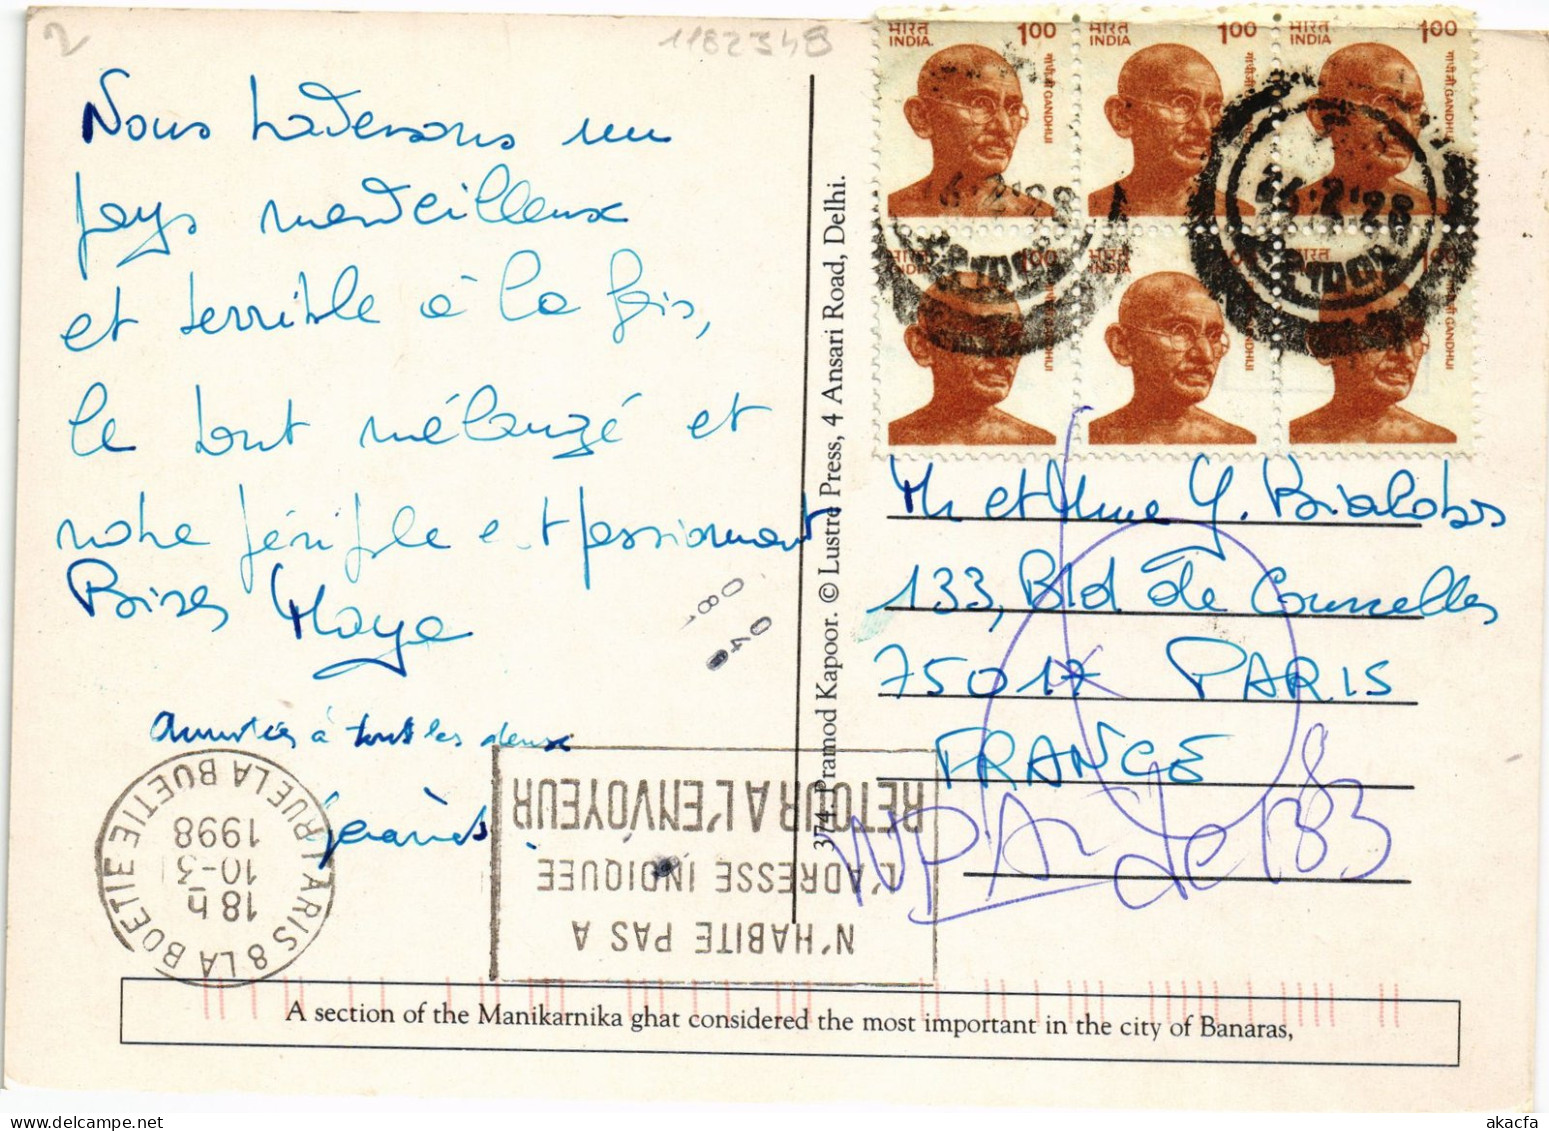 2
1182348
Nous traversons un
pays merveilleux
et terrible à la fois,
le tout mélangé et
notre périple est passionnant
Bises Maya
Amitiés à tous les deux
Gérard
374. Pramod Kapoor. © Lustre Press, 4 Ansari Road, Delhi.
भारत INDIA 1.00
गांधीजी GANDHIJI
भारत INDIA 1.00
गांधीजी GANDHIJI
भारत INDIA 1.00
गांधीजी GANDHIJI
भारत INDIA 1.00
गांधीजी GANDHIJI
भारत INDIA 1.00
गांधीजी GANDHIJI
भारत INDIA 1.00
गांधीजी GANDHIJI
26.2.98
Mr et Mme Y. Bialobos
133, Bld de Courcelles
75017 PARIS
FRANCE
NPA 183
PARIS 8 LA BOETIE 8 LA BOETIE
18 h
10-3
1998
N'HABITE PAS A
L'ADRESSE INDIQUEE
RETOUR A L'ENVOYEUR
A section of the Manikarnika ghat considered the most important in the city of Banaras,
akacfa